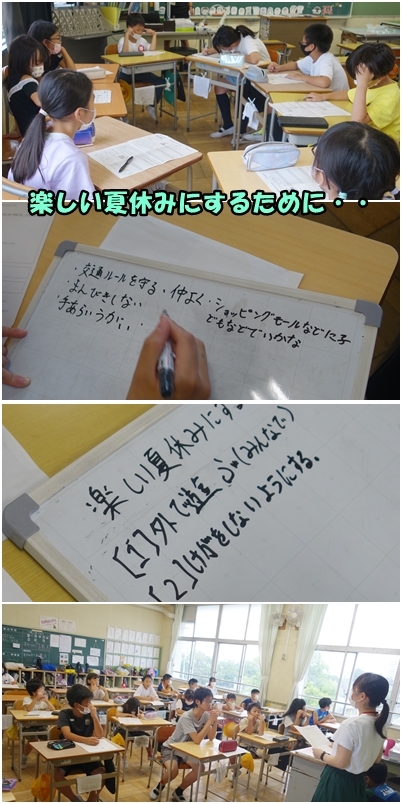 楽しい夏休みにするために・・
・交通ルールを守る・仲よく・ショッピングモールなどに子
・よんびきしない どもなどでいかな
・手あらいうがい・
楽しい夏休みにする
【1】外で遊ぶ(みんなで)
【2】けがをしないようにする。